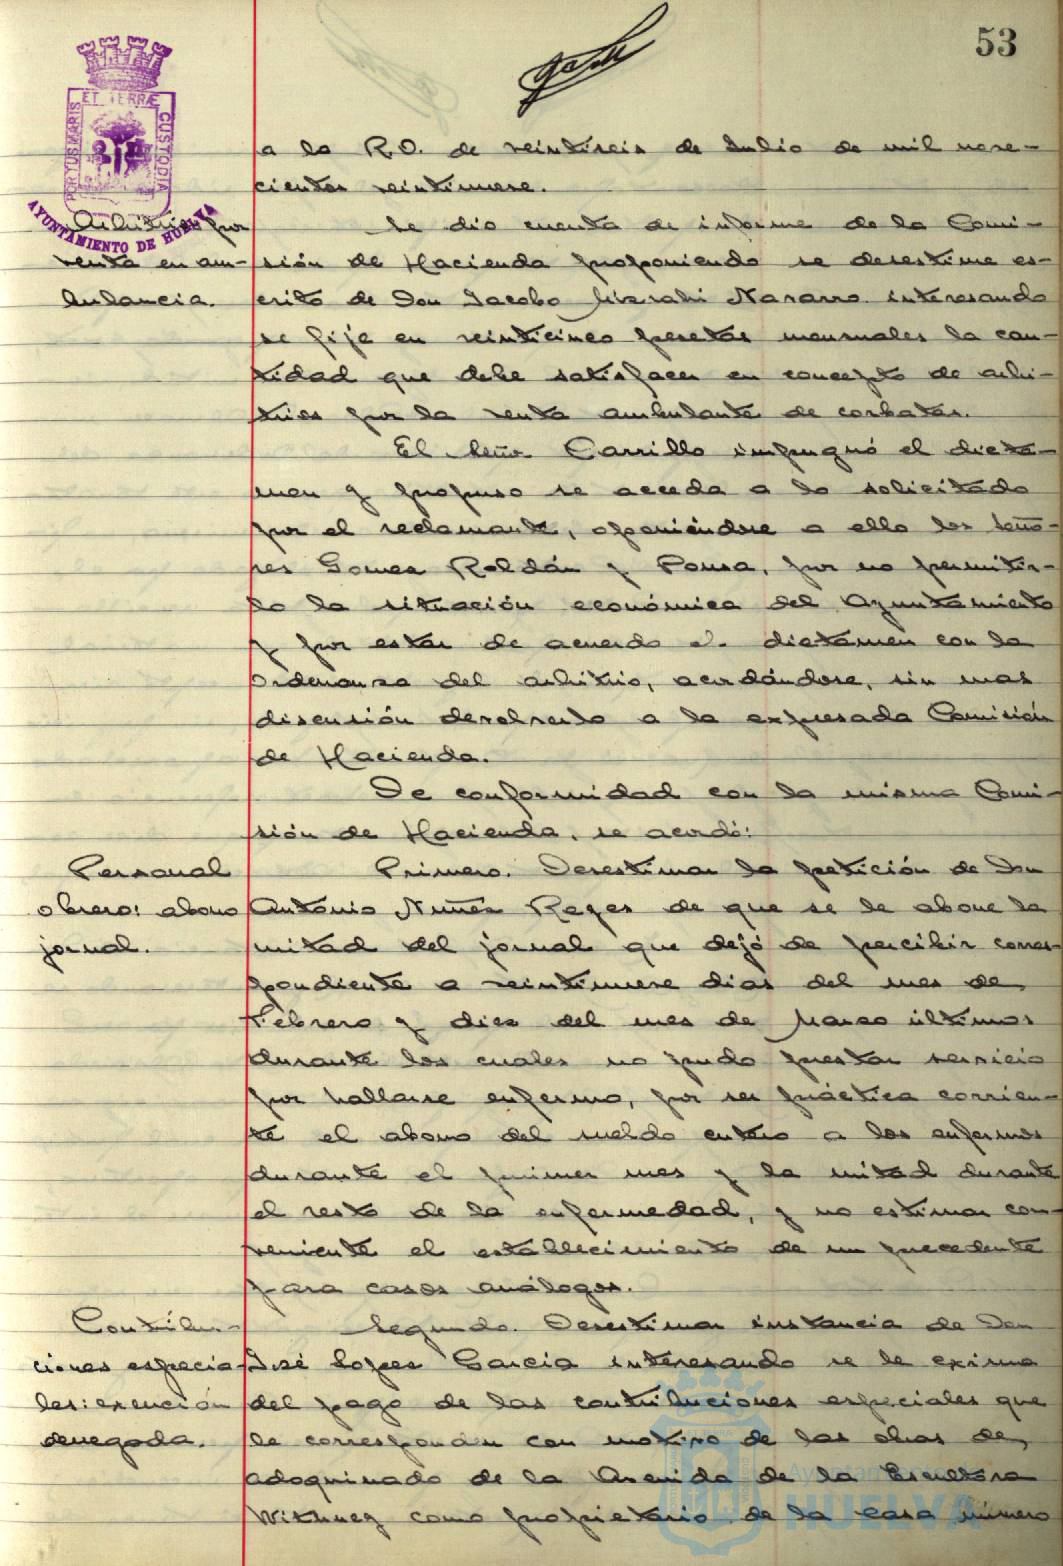 53
PORTUS MARIS ET TERRÆ CUSTODIA
AYUNTAMIENTO DE HUELVA
a la R.O. de veintiseis de Julio de mil nove-
cientos veintinueve.
Arbitrios por
venta en am-
bulancia.
Se dio cuenta de informe de la Comi-
sión de Hacienda proponiendo se desestime es-
crito de Don Jacobo Mizrahi Navarro interesando
se fije en veinticinco pesetas mensuales la can-
tidad que debe satisfacer en concepto de arbi-
trios por la venta ambulante de corbatas.
El Señor Carrillo impugnó el dictá-
men y propuso se acceda a lo solicitado
por el reclamante, oponiéndose a ello los seño-
res Gomez Roldán y Ponsa, por no permitir-
lo la situación económica del Ayuntamiento
y por estar de acuerdo el dictámen con la
Ordenanza del arbitrio, acordándose, sin mas
discusión devolverlo a la expresada Comisión
de Hacienda.
De conformidad con la misma Comi-
sión de Hacienda, se acordó:
Personal
obrero: abono
jornal.
Primero. Desestimar la petición de Don
Antonio Nuñez Reyes de que se le abone la
mitad del jornal que dejó de percibir corres-
pondiente a veintinueve dias del mes de
Febrero y diez del mes de Marzo últimos
durante los cuales no pudo prestar servicio
por hallarse enfermo, por ser práctica corrien-
te el abono del sueldo entero a los enfermos
durante el primer mes y la mitad durante
el resto de la enfermedad, y no estimar con-
veniente el establecimiento de un precedente
para casos análogos.
Contribu-
ciones especia-
les: exención
denegada.
Segundo. Desestimar instancia de Don
José Lopez Garcia interesando se le exima
del pago de las contribuciones especiales que
le corresponden con motivo de las obras de
adoquinado de la Avenida de la Escultora
Withney como propietario de la casa número
Ayuntamiento
HUELVA